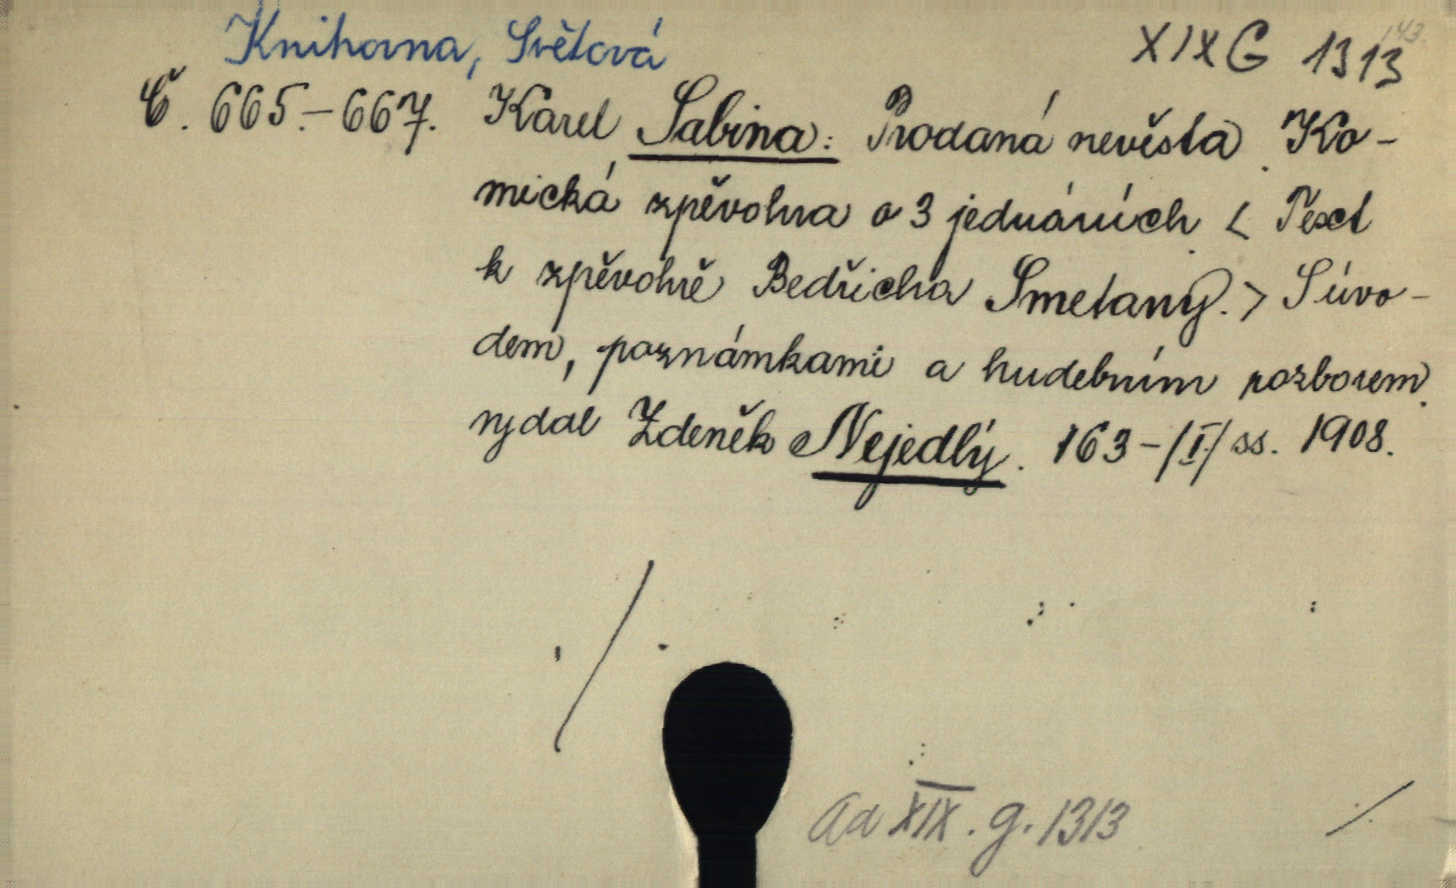 Knihovna, Světová
XIX G 1313
Č. 665.-667. Karel Sabina: Prodaná nevěsta. Ko-
mická zpěvohra o 3 jednáních < Text
k zpěvohře Bedřicha Smetany. > S úvo-
dem, poznámkami a hudebním rozborem
vydal Zdeněk Nejedlý. 163-/I./ ss. 1908.
Ad XIX. g. 1313